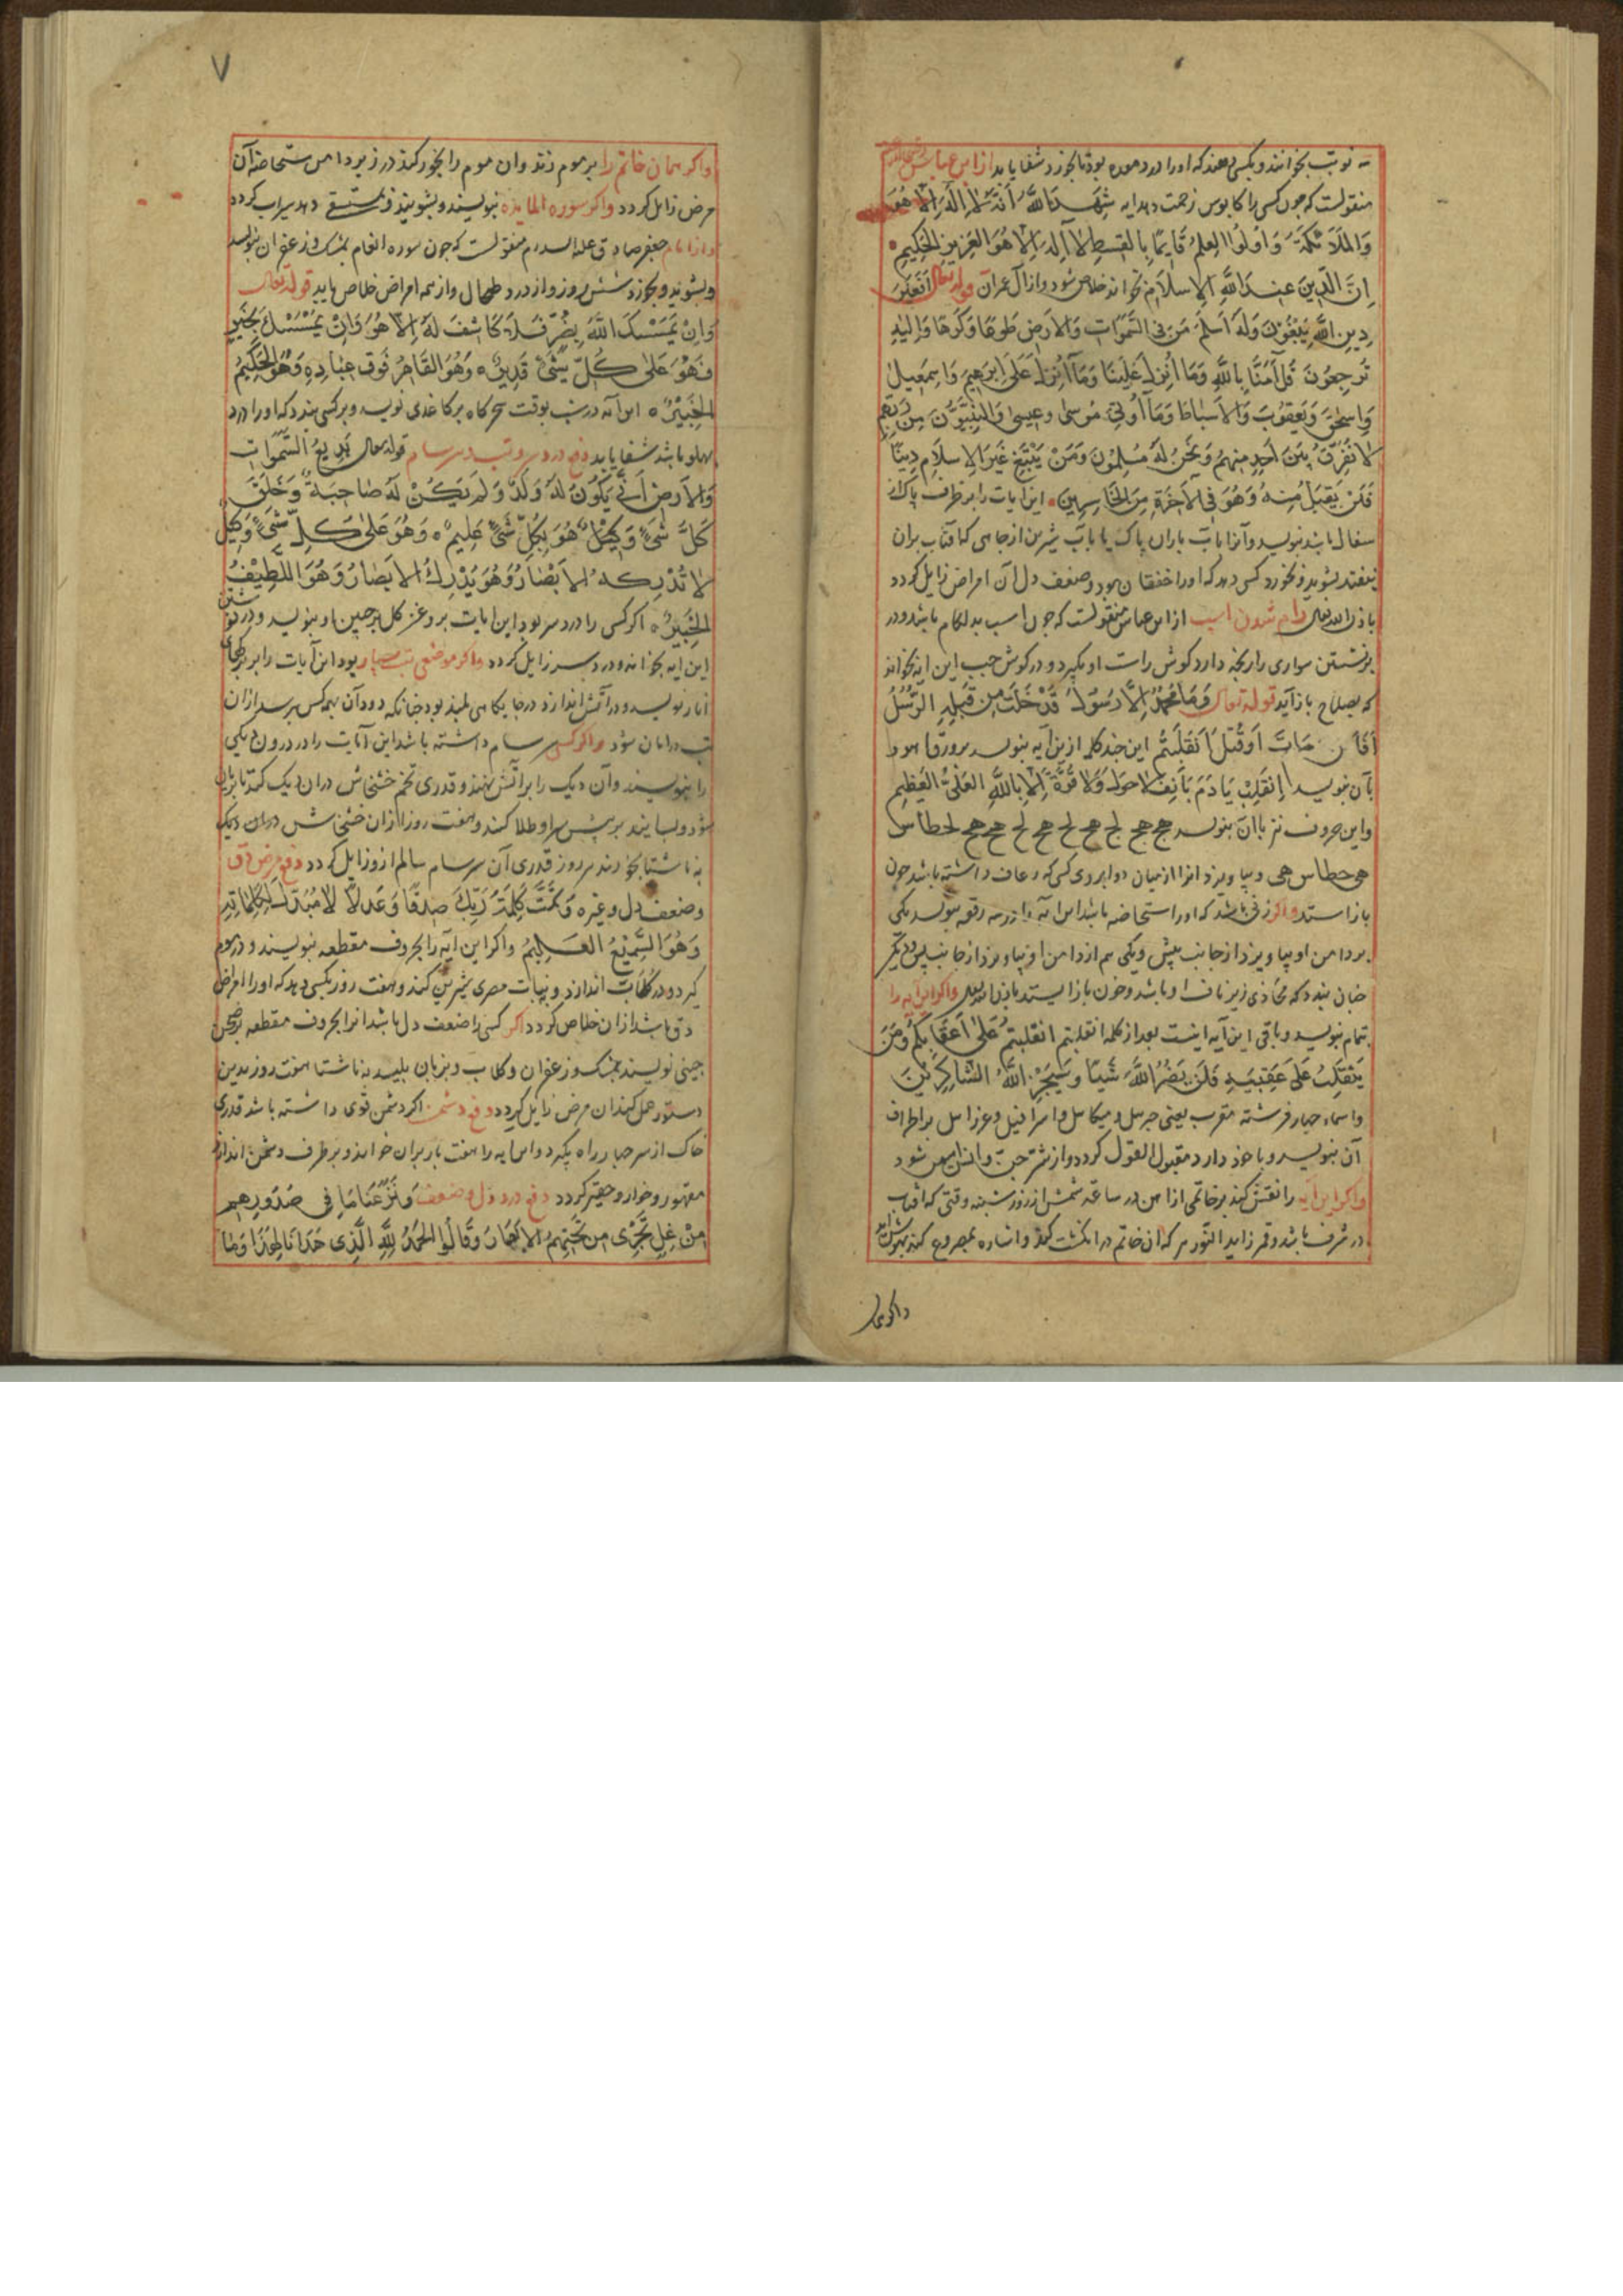 سه نوبت بخوانند و بکسی دهند که اورا درد معده بود تا بخورد شفا یابد از ابن عباس
منقولست که چون کسی را کابوس زحمت دهد ایه شَهِدَ اللَّهُ اَنَّهُ لَا اِلَهَ اِلَّا هُوَ
وَالمَلَائِکَةُ وَاُولُوا العِلمِ قَایِمًا بِالقِسطِ لَا اِلَهَ اِلَّا هُوَ العَزِیزِ الحَکِیمِ
اِنَّ الدِّینَ عِندَ اللَّهِ الاِسلَامُ بخواند خلاص شود و از آل عمران قوله تعالی اَفَغَیرَ
دِینِ اللَّهِ یَبغُونَ وَلَهُ اَسلَمَ مَن فِی السَّمَوَاتِ وَالاَرضِ طَوعًا وَکَرهًا وَاِلَیهِ
تُرجَعُونَ قُل آمَنَّا بِاللَّهِ وَمَا اُنزِلَ عَلَینَا وَمَا اُنزِلَ عَلَی اِبرَهِیمَ وَاِسمَعِیلَ
وَاِسحَقَ وَیَعقُوبَ وَالاَسبَاطَ وَمَا اُوتِیَ مُوسَی وعِیسی وَالنَّبِیُّونَ مِن رَبِّهِم
لَا نُفَرِّقُ بَینَ اَحَدٍ مِنهُم وَنَحنُ لَهُ مُسلِمُونَ وَمَن یَبتَغِ غَیرَ الاِسلَامِ دِینًا
فَلَن یُقبَلَ مِنهُ وَهُوَ فِی الآخِرَةِ مِنَ الخَاسِرِینَ این ایات را بر ظرف پاک از
سفال باشد نویسد و آنرا باب باران پاک یا باب شیرین از جاهی که آفتاب بران
نیفتد بشوید و بخورد کسی دهد که اورا خفقان بود و ضعف دل آن امراض زایل کردد
باذن الله تعالی رام شدن اسب از ابن عباس منقولست که چون اسب بد لکام باشد و در
برنشستن سواری را رنجه دارد کوش راست او بکیرد و در کوش چپ این ایه بخواند
که بصلاح باز آید قوله تعالی وَمَا مُحَمَّدٌ اِلَّا رَسُولٌ قَدْ خَلَتْ مِن قَبلِهِ الرُّسُلُ
اَفَاِن مَاتَ اَو قُتِلَ اَنقَلَبتُم این چند کلمه ازین آیه بنویسد بر ورق
بآن بنویسد اِنقَلِبْ یَا دَمُ بِاَنفِ لَاحَولَ وَلَا قُوَّةَ اِلَّا بِاللَّهِ العَلِیِّ العَظِیمِ
واین حروف نیز باان بنویسد
و بیاویزد انرا ازمیان دو ابروی کسی که رعاف داشته باشد خون
باز استد واکر زنی باشد که اورا استحاضه باشد این آیه را در سه رقعه بنویسد یکی
بر دامن او بیاویزد از جانب پیش و یکی هم از دامن او بیاویزد از جانب پس و دیکر
چنان بندد که محاذی زیر ناف او باشد و خون باز ایستد باذن الله تعالی واکر این آیه را
تمام بنویسد و باقی این آیه اینست بعد از کلمه انقلبتم انقَلَبتُم عَلَی اَعقَابِکُم وَمَن
یَنقَلِبْ عَلَی عَقِبَیهِ فَلَن یَضُرَّ اللَّهَ شَیئًا وَسَیَجزِی اللَّهُ الشَّاکِرِینَ
و اسماء چهار فرشته مقرب یعنی جبرییل و میکاییل و اسرافیل و عزراییل بر اطراف
آن بنویسد و با خود دارد مقبول القول کردد و از شر جن و انس ایمن شود
واکر این آیه را نقش کند بر خاتمی از آهن در ساعة شمس از روز شنبه وقتی که آفتاب
در شرف باشد و قمر زاید النور هر که ان خاتم در انکشت کند و اشاره بمصروع کند بیهوش آید
واکر همان
۷
واکر همان خاتم را بر موم زند و ان موم را بخور کند در زیر دامن مستحاضه آن
مرض زایل کردد واکر سوره المایده بنویسند و بشویند و بمستسقی دهد سیراب کردد
و از امام جعفر صادق علیه السلام منقولست که چون سوره انعام بمشک و زعفران بنویسد
و بشوید و بخورد شش روز و از درد طحال و از همه امراض خلاص یابد قوله تعالی
وَاِنْ یَمْسَسْکَ اللَّهُ بِضُرٍّ فَلَا کَاشِفَ لَهُ اِلَّا هُوَ وَاِنْ یَمْسَسْکَ بِخَیرٍ
فَهُوَ عَلَی کُلِّ شَیْءٍ قَدِیرٌ وَهُوَ القَاهِرُ فَوقَ عِبَادِهِ وَهُوَ الحَکِیمُ
الخَبِیْرُ این آیه در شب بوقت سحرکاه بر کاغذی نویسد و بر کسی بندد که اورا درد
پهلو باشد شفا یابد دفع درد سر و تب و سرسام قوله تعالی بَدِیعُ السَّمَوَاتِ
وَالاَرضِ اَنَّی یَکُونُ لَهُ وَلَدٌ وَلَم یَکُنْ لَهُ صَاحِبَةٌ وَخَلَقَ
کُلَّ شَیءٍ وَهُوَ بِکُلِّ شَیءٍ عَلِیمٌ وَهُوَ عَلَی کُلِّ شَیءٍ وَکِیلٌ
لَا تُدْرِکُهُ الاَبْصَارُ وَهُوَ یُدْرِکُ الاَبصَارَ وَهُوَ اللَّطِیْفُ
الخَبِیرُ اکر کسی را درد سر بود این ایات بر روغن کل بر جبین او بنویسد و در
این ایه بخواند و درد سر زایل کردد واکر موضعی تب بسیار بود این آیات را بر برکهای
انار نویسد و در آتش اندازد در جایکاهی بلند بود چنانکه دود آن بهمه کس برسد از ان
تب در امان شود واکر کسی سرسام داشته باشد این آیات را در درون دیکی
را بنویسند و آن دیک را بر آتش نهند و قدری تخم خشخاش در ان دیک کنند تا بریان
شود و بسایند بر پیش سر او طلا کنند و هفت روز از ان خشخاش در ان دیک
بناشتا بخورند هر روز قدری آن سرسام سالم از و زایل کردد دفع مرض دق
و ضعف دل و غیره وَتَمَّتْ کَلِمَتُ رَبِّکَ صِدقًا وَعَدلًا لَا مُبَدِّلَ لِکَلِمَاتِهِ
وَهُوَ السَّمِیْعُ العَلِیمُ واکر این ایه را بحروف مقطعه بنویسند و در موم
کیرد و در کلاب اندازد و بنبات مصری شیرین کند و هفت روز بکسی دهد که اورا امراض
دق باشد از ان خلاص کردد اکر کسی را ضعف دل باشد انرا بحروف مقطعه بر صحن
چینی نویسند بمشک و زعفران و کلاب و بزبان بلیسد بناشتا هفت روز بدین
دستور عمل کند ان مرض زایل کردد دفع دشمن اکر دشمن قوی داشته باشد قدری
خاک از سر چهار راه بکیرد و این ایه را هفت بار بران خواند و بر طرف دشمن اندازد
مقهور و خوار و حقیر کردد دفع درد دل و ضعف وَنَزَعْنَا مَا فِی صُدُورِهِم
مِنْ غِلٍّ تَجْرِی مِن تَحْتِهِمُ الاَنهَارُ وَقَالُوا الحَمدُ لِلَّهِ الَّذِی هَدَانَا لِهَذَا وَمَا